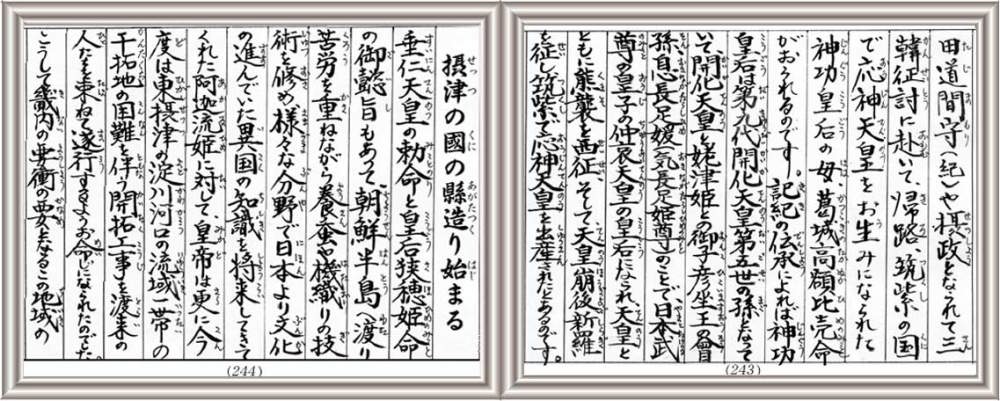 田道間守(紀)や摂政となられて三
韓征討に赴いて、帰路、筑紫の国
で応神天皇をお生みになられた
神功皇后の母、葛城高顙比売命
がおられるのです。記紀の伝承によれば神功
皇后は第九代開化天皇第五世の孫となって
いて、開化天皇と姥津姫との御子彦坐王の曾
孫、息長足媛(気長足姫尊)のことで、日本武
尊の皇子の仲哀天皇の皇后になられ、天皇と
ともに熊襲を西征、そして天皇崩後、新羅
を征し、筑紫で応神天皇を出産されたとあるのです。
(243)
摂津の國の縣造り始まる
垂仁天皇の勅命と皇后狭穂姫命
の御懿旨もあって、朝鮮半島へ渡り
苦労を重ねながら養蚕や機織りの技
術を修め、様々な分野で日本より文化
の進んでいた異国の知識を将来してきて
くれた阿迦流姫に対して、皇帝は更に今
度は東摂津の淀川河口の流域一帯の
干拓地の困難を伴う開拓工事を渡来の
人たちを束ね遂行するようお命じになられたのでした。
こうして畿内の要衝の要となるこの地域の
(244)